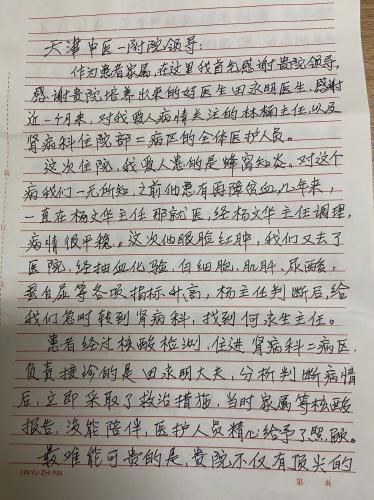 天津中医一附院领导:
作为患者家属,在这里我首先感谢贵院领导,
感谢贵院培养出来的好医生田永明医生,感谢
近一个月来,对我爱人病情关注的林楠主任,以及
肾病科住院部二病区的全体医护人员。
这次住院,我爱人患的是蜂窝知炎。对这个
病我们一无所知,之前他患有再障贫血,几年来,
一直在杨文华主任那就医,经杨文华主任调理,
病情很平稳。这次他眼脸红肿,我们又去了
医院,经抽血化验,白细胞,肌肝,尿酸,
蛋白尿等各项指标升高,杨主任判断后,给
我们急时转到肾病科,找到何永生主任。
患者经过核酸检测,住进肾病科二病区,
负责接诊的是田永明大夫,分析判断病情
后,立即采取了救治措施,当时家属等核酸
报告,没能陪伴,医护人员精心给予了照顾。
最难能可贵的是,贵院不仅有顶尖的
XIN YU ZHI PIN
第 页